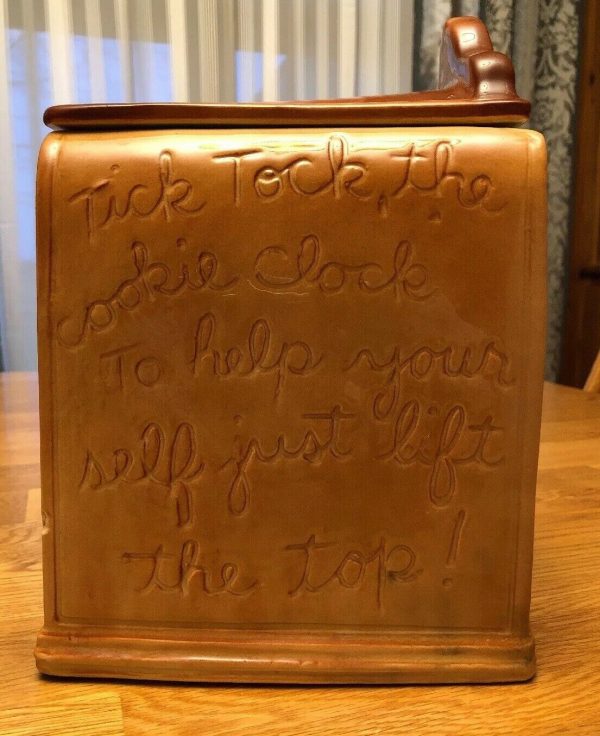 Tick Tock, the
cookie Clock
To help your
self just lift
the top!